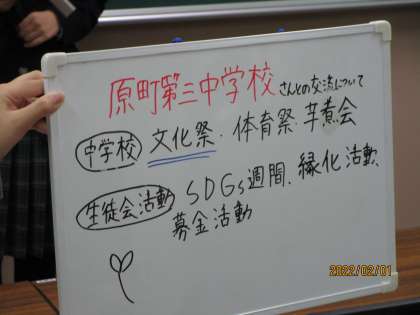 原町第三中学校さんとの交流について
中学校 文化祭、体育祭、芋煮会
生徒会活動 SDGs週間、緑化活動、
募金活動
2022/02/01